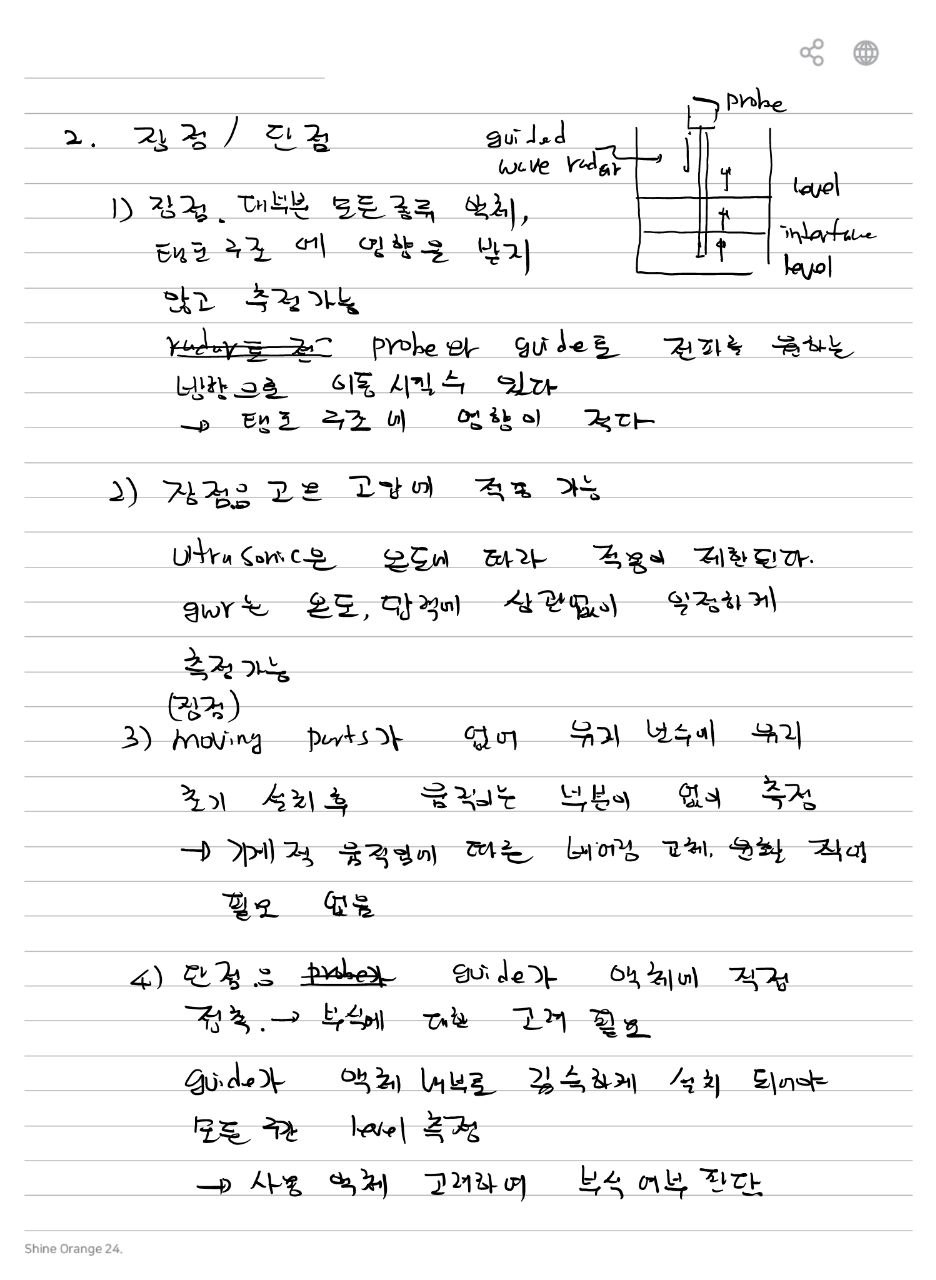 probe
2. 장점 / 단점
guided
wave radar
level
interface
level
1) 장점. 대부분 모든 종류 액체,
탱크 구조에 영향을 받지
않고 측정가능
probe와 guide로 전파를 원하는
방향으로 이동 시킬 수 있다
→ 탱크 구조에 영향이 적다
2) 장점은 고온 고압에 적용 가능
Ultra Sonic은 온도에 따라 적용이 제한된다.
gwr는 온도, 압력에 상관없이 일정하게
측정 가능
(장점)
3) moving parts가 없어 유지 보수에 유리
초기 설치 후 움직이는 부분이 없이 측정
→ 기계적 움직임에 따른 베어링 교체, 윤활 작업
필요 없음
4) 단점은 probe가 guide가 액체에 직접
접촉. → 부식에 대한 고려 필요
guide가 액체 내부로 깊숙하게 설치 되어야
모든 구간 level 측정
→ 사용 액체 고려하여 부식 여부 판단
Shine Orange 24.